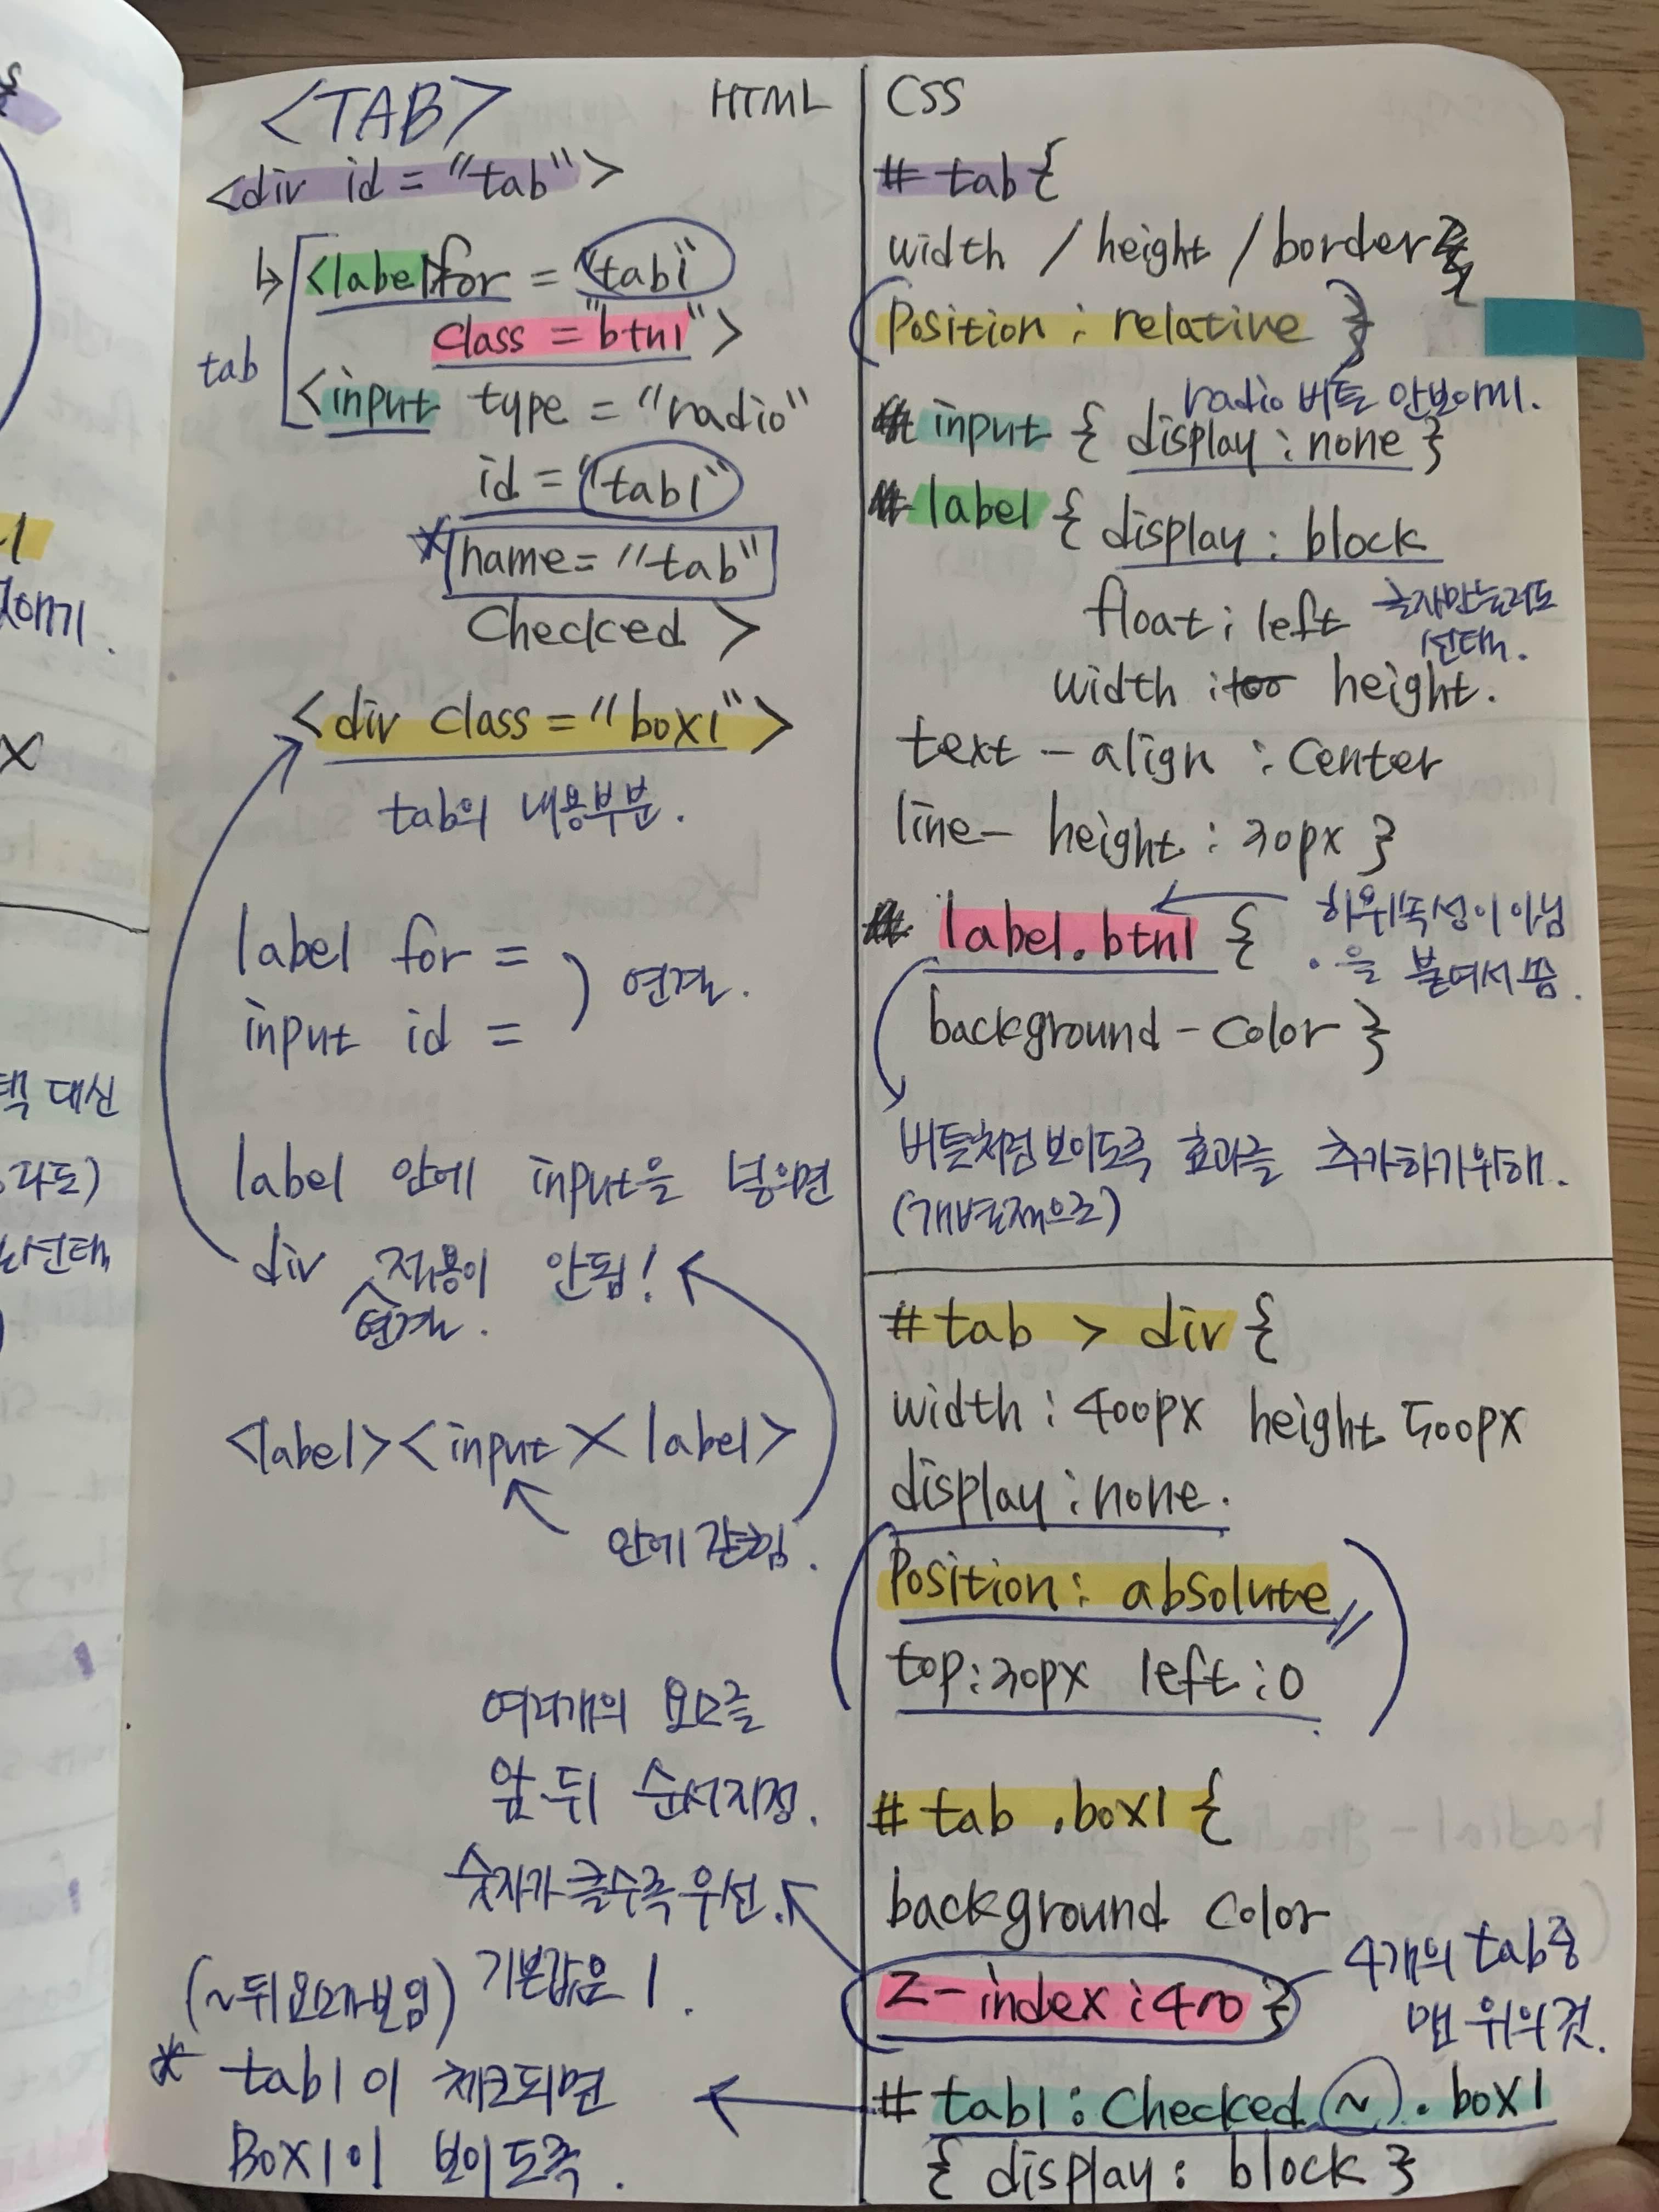 <TAB> HTML
<div id = "tab">
↳ <label for = "tab1"
class = "btn1">
tab
<input type = "radio"
id = "tab1"
* name = "tab"
Checked >
<div class = "box1">
tab의 내용부분.
label for =
input id =
) 연결.
label 안에 input을 넣으면
div 적용이 안됨!
연결.
<label><input X label>
안에 갇힘.
여러개의 요소를
앞·뒤 순서지정.
숫자가 클수록 우선.
기본값은 1.
(~뒤 요소가 보임)
* tab1이 체크되면
Box1이 보이도록.
CSS
# tab {
width / height / border
(Position : relative })
radio 버튼 안보이게.
input { display : none }
label { display : block
float : left 글자만 눌러도
선택.
width : height.
text - align : center
line - height : 30px }
label.btn1 { 하위속성이 아님
. 을 붙여서 씀.
background - color }
버튼처럼 보이도록 효과를 추가하기위해.
(개별적으로)
# tab > div {
width : 400px height 500px
display : none.
Position : absolute
top : 30px left : 0
# tab .box1 {
background color
z-index : 40 } 4개의 tab중
맨 위의 것.
# tab1 : Checked ~ . box1
{ display : block }
연기.
X
택 대신